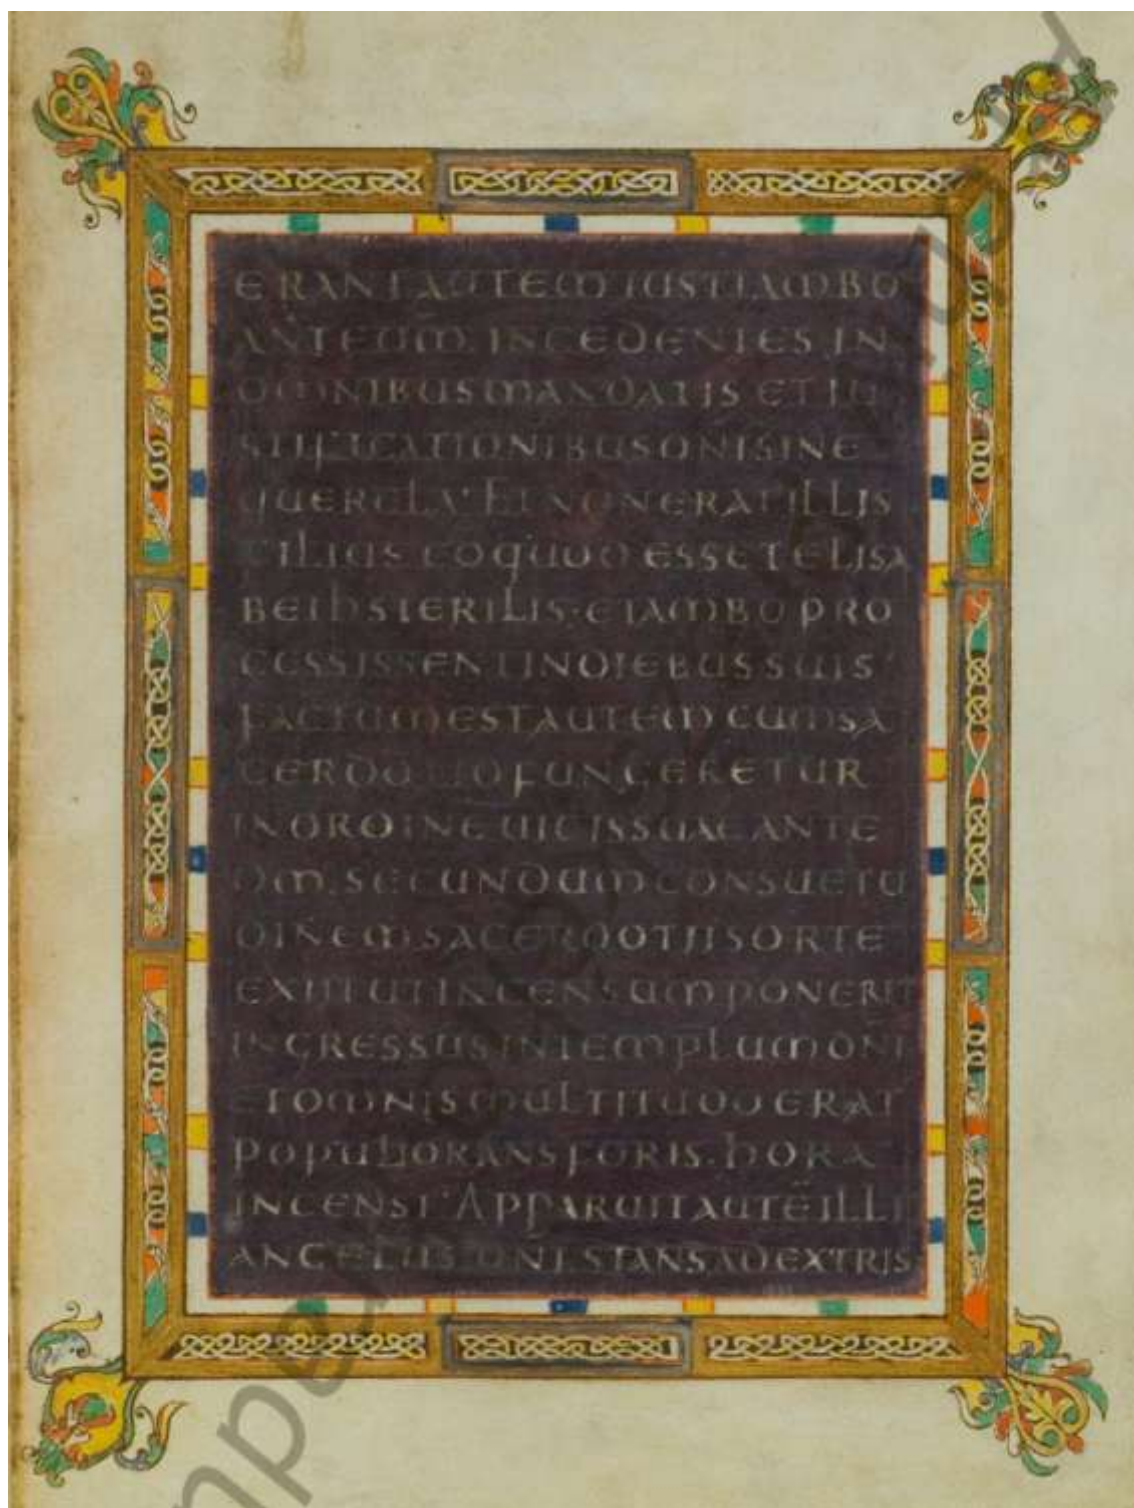 ERANTAUTEMIUSTIAMBO
ANTEUM. INCEDENTES IN
OMNIBUSMANDATIS ETIU
STIFICATIONIBUSDNISINE
QUERELA· ETNONERATILLIS
FILIUS EOQUODESSETELISA
BETHSTERILIS· ETAMBOPRO
CESSISSENTINDIEBUSSUIS·
FACTUMESTAUTEMCUMSA
CERDOTIOFUNGERETUR
INORDINEUICISSUAEANTE
DM. SECUNDUMCONSUETU
DINEMSACERDOTIISORTE
EXIITUTINCENSUMPONERET
INGRESSUSINTEMPLUMDNI
ETOMNISMULTITUDOERAT
POPULIORANSFORIS. HORA
INCENSI· APPARUITAUTEILLI
ANGELUSDNISTANSADEXTRIS